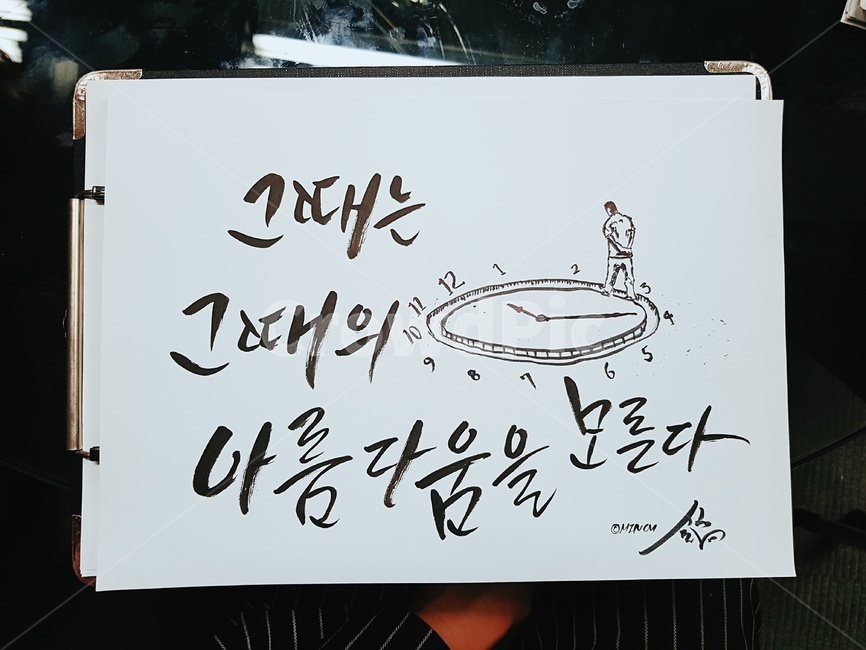 그때는
그때의
아름다움을 모른다
12 1 2 3 4 5 6 7 8 9 10 11
©MINCU
CrowdPic